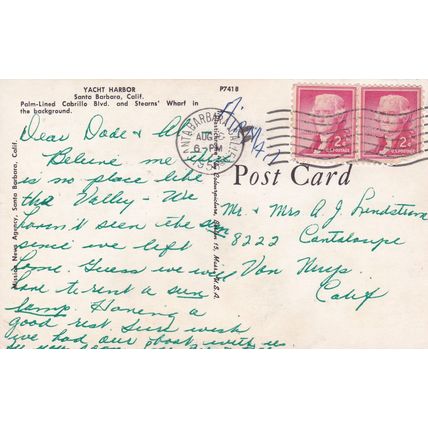 YACHT HARBOR
Santa Barbara, Calif.
Palm-Lined Cabrillo Blvd. and Stearns' Wharf in
the background.
P7418
SANTA BARBARA CALIF.
AUG
6-PM
2¢
U.S. POSTAGE
2¢
U.S. POSTAGE
Post Card
Mission News Agency, Santa Barbara, Calif.
Boston 15, Mass., U.S.A.
Dear Dode & Al
Believe me there
is no place like
the Valley - We
haven't seen the sun
since we left
home. Guess we will
have to rent a sun
lamp. Having a
good rest. Sure wish
we had our boat with us
Mr. & Mrs A J Lindstrom
8222 Cantaloupe
Van Nuys
Calif